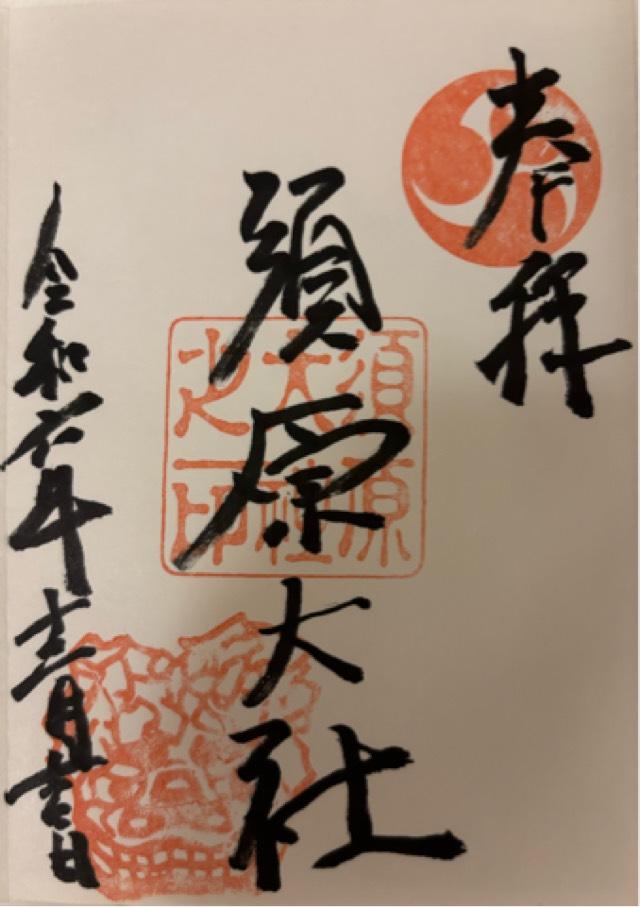 奉拝
須原大社
須原
大社
之印
令和六年十二月吉日